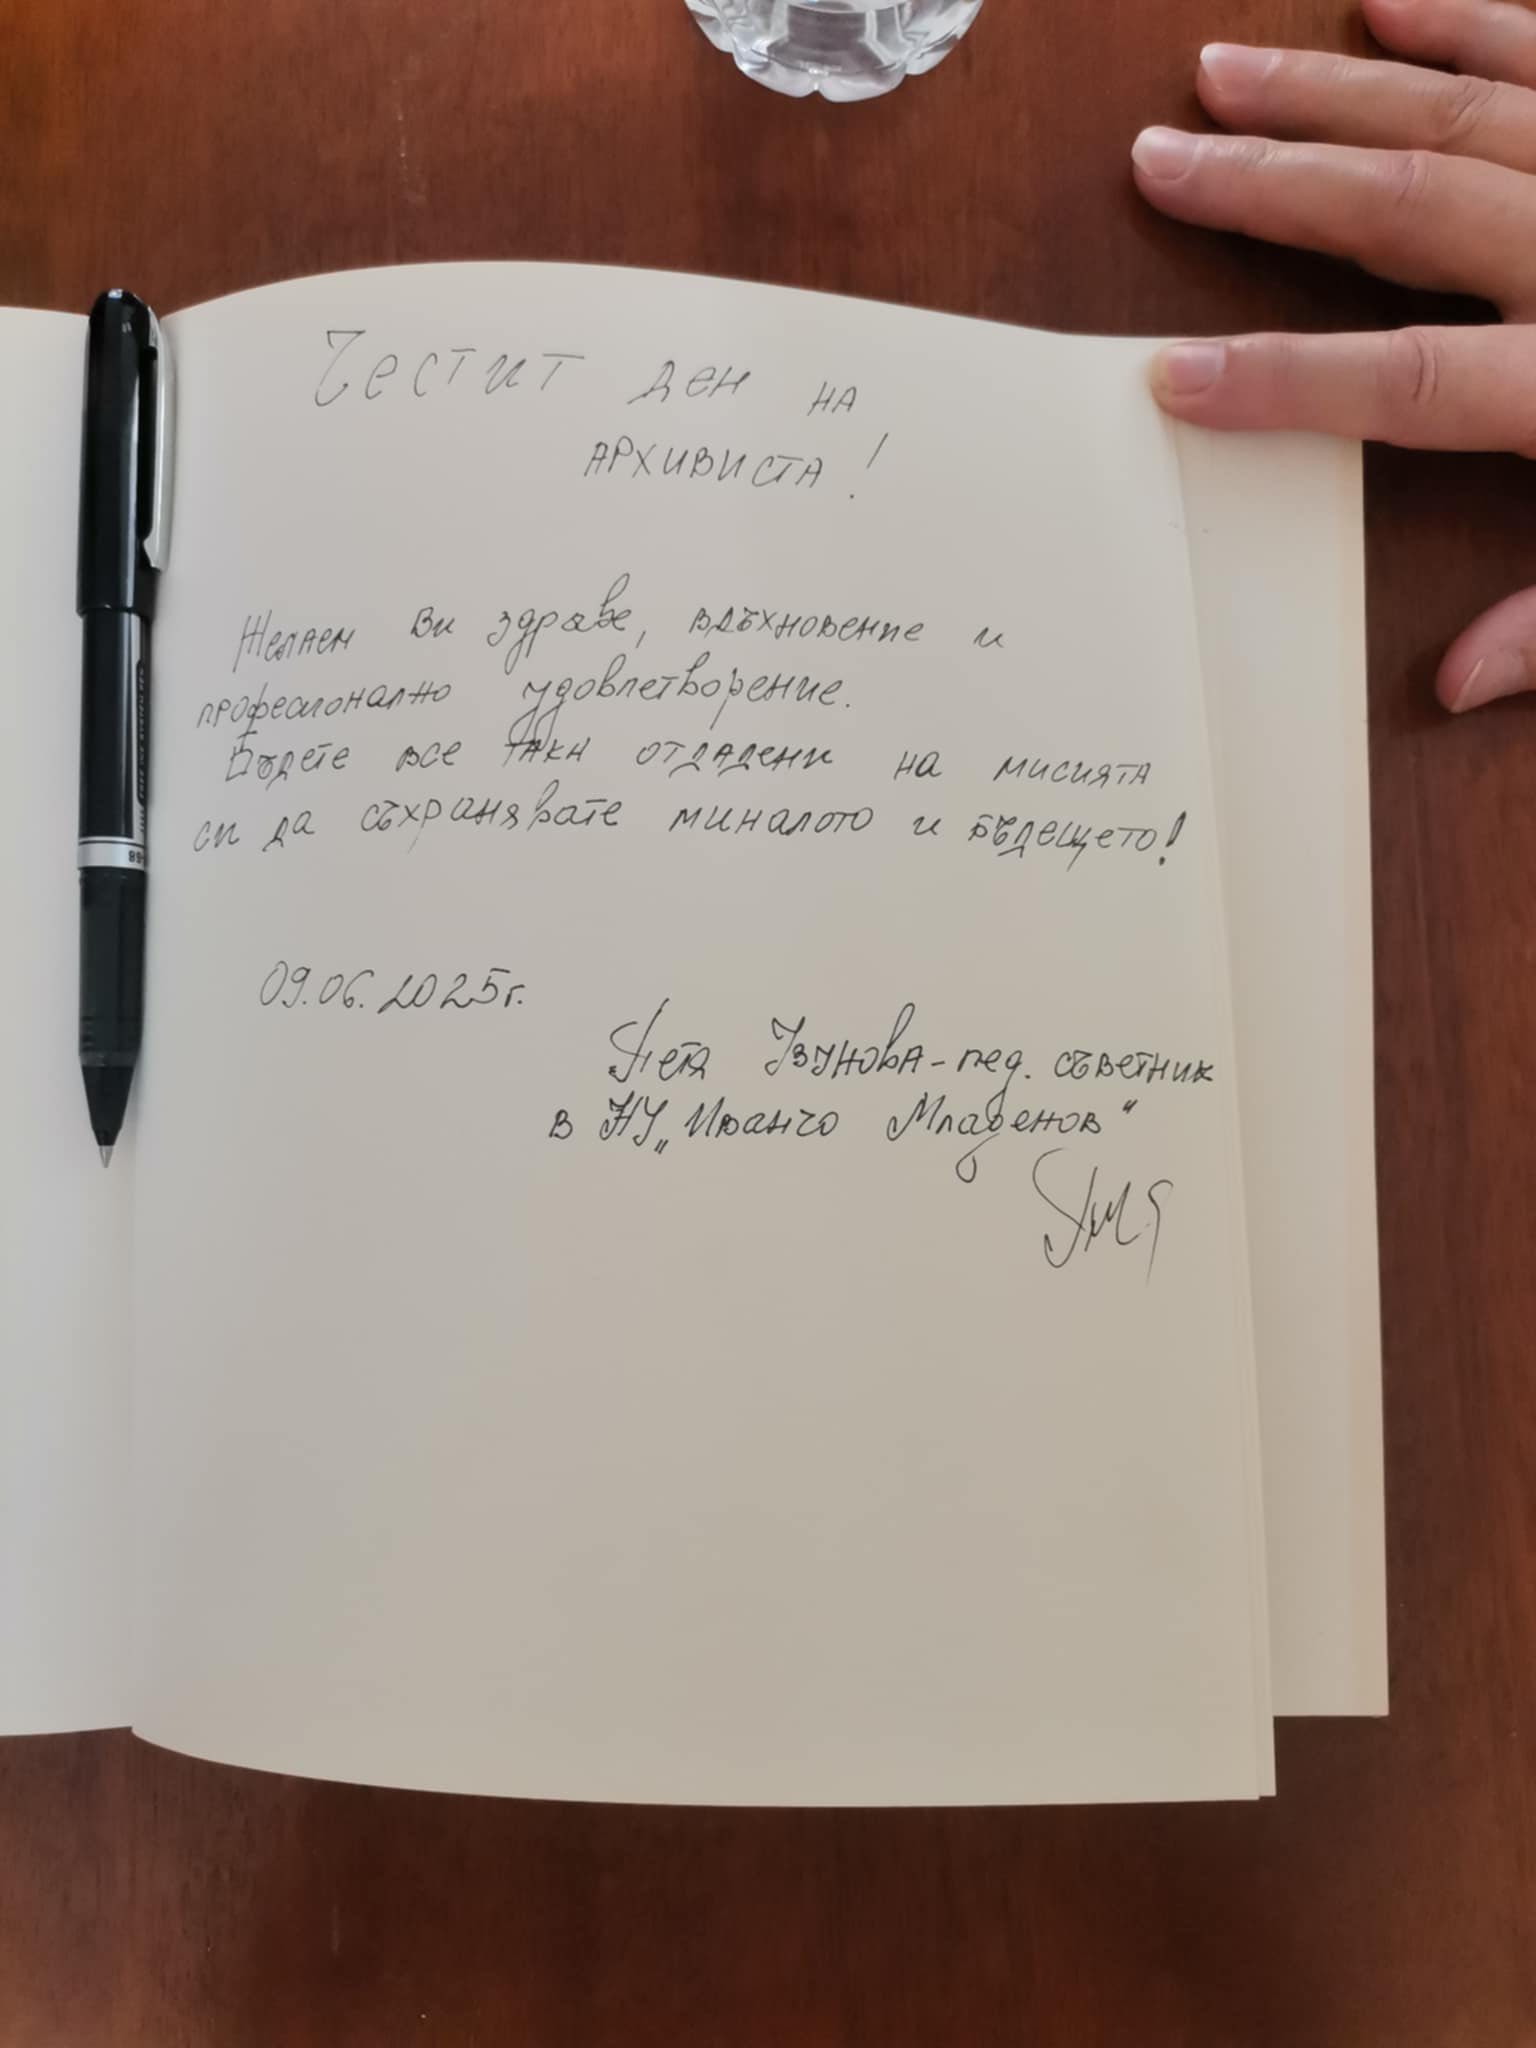 Честит ден на
архивиста!
Желаем Ви здраве, вдъхновение и
професионално удовлетворение.
Бъдете все така отдадени на мисията
си да съхранявате миналото и бъдещето!
09.06.2025г.
Петя Узунова - пед. съветник
в НУ „Иванчо Младенов"